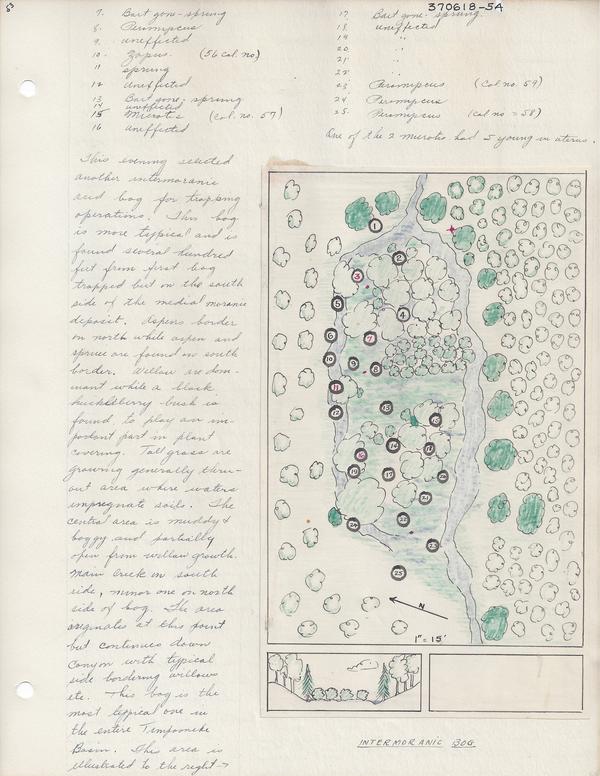 8
370618-54
7. Bait gone - sprung
8. Peromyscus
9. uneffected
10. Zapus (56 cal. no)
11 sprung
12 Uneffected
13 Bait gone, sprung
14 uneffected
15 Microtis (cal. no. 57)
16 uneffected
17. Bait gone - sprung.
18. uneffected
19 "
20 "
21 "
22 "
23 Peromyscus (Cal no. 59)
24 Peromyscus
25. Peromyscus (Cal no = 58)
One of the 2 microtis had 5 young in uterus.
This evening selected
another intermoranic
and bog for trapping
operations. This bog
is more typical and is
found several hundred
feet from first bog
trapped but on the south
side of the medial moranic
deposit. Aspens border
on north while aspen and
spruce are found on south
border. Willow are dom-
inant while a black
huckleberry bush is
found, to play an im-
portant part in plant
covering. Tall grass are
growing generally thru-
out area where waters
impregnate soils. The
central area is muddy &
boggy and partially
open from willow growth.
Main Creek on south
side, minor one on north
side of bog. The area
originates at this point
but continues down
Canyon with typical
side bordering willows
etc. This bog is the
most typical one in
the entire Timponeke
Basin. This area is
illustrated to the right →
1
2
3
4
5
6
7
10
9
8
11
12
13
15
14
18
16
19
17
20
21
24
22
23
25
N
1" = 15'
INTERMORANIC BOG